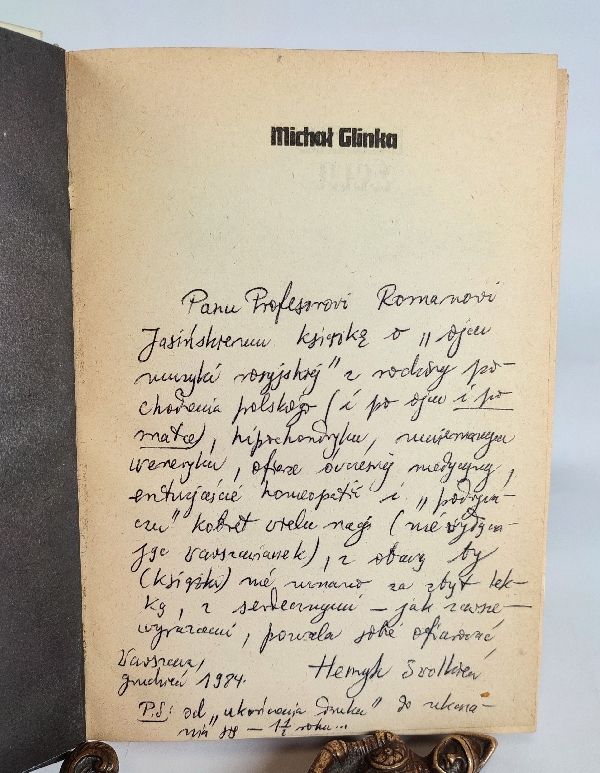 Michał Glinka
Panu Profesorowi Romanowi
Jasińskiemu książkę o „ojcu
muzyki rosyjskiej" z rodziny po-
chodzenia polskiego (i po ojcu i po
matce), hipochondryku, 
weneryku, ofierze ówczesnej medycyny,
entuzjaście homeopatii i „podrywa-
czu" kobiet wielu nacji (nie wyłącza-
jąc warszawianek), z obawy by
(książki) nie uznano za zbyt lek-
ką, z serdecznymi – jak zawsze –
wyrazami, pozwala sobie ofiarować
Warszawa,
grudzień 1984.
Henryk Swolkień
P.S: od „ukończenia druku" do ukaza-
nia się – 1 1/2 roku...